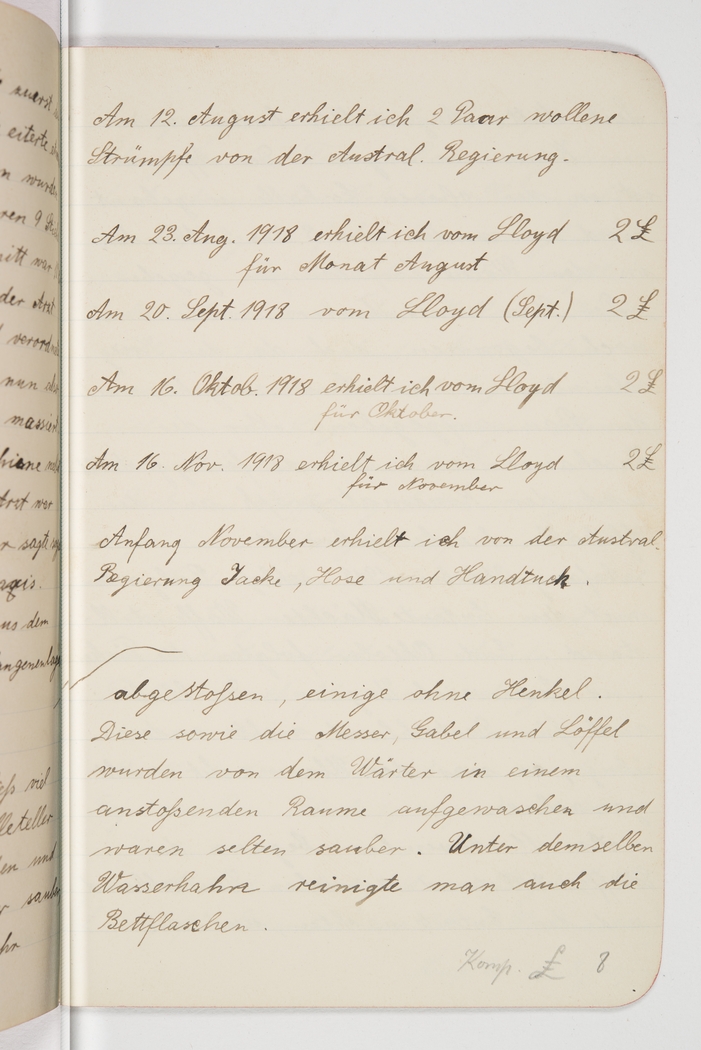 zuerst
eiterte
wurde
ren 9
nitt war
der Arzt
verord
nun
massiert
hiene
trat
sagte
us dem
angenenlag
viel
lleteller
en und
saub
Am 12. August erhielt ich 2 Paar wollene
Strümpfe von der Austral. Regierung.
Am 23. Aug. 1918 erhielt ich vom Lloyd 2 £
für Monat August
Am 20. Sept. 1918 vom Lloyd (Sept.) 2 £
Am 16. Oktob. 1918 erhielt ich vom Lloyd 2 £
für Oktober.
Am 16. Nov. 1918 erhielt ich vom Lloyd 2 £
für November
Anfang November erhielt ich von der Austral.
Regierung Jacke, Hose und Handtuch.
abgestoßen, einige ohne Henkel.
Diese sowie die Messer, Gabel und Löffel
wurden von dem Wärter in einem
anstoßenden Raume aufgewaschen und
waren selten sauber. Unter demselben
Wasserhahn reinigte man auch die
Bettflaschen.
Komp. £ 8